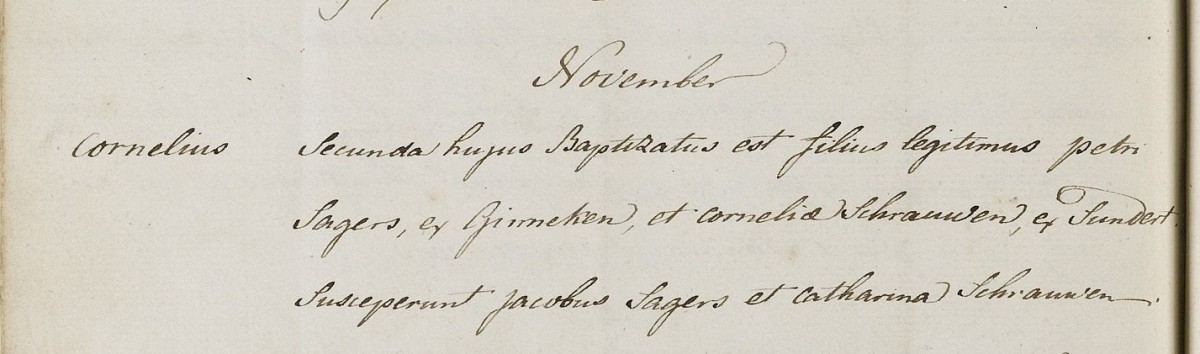 November
Cornelius Secunda hujus Baptizatus est filius legitimus petri
Sagers, ex Ginneken, et corneliæ Schrauwen, ex Sundert.
Susceperunt jacobus Sagers et catharina Schrauwen.